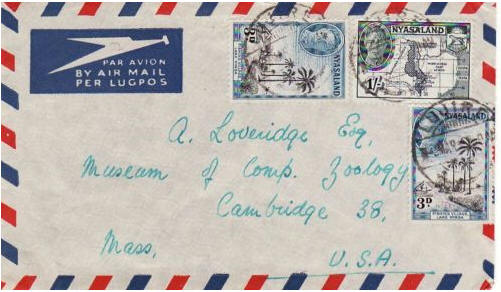 PAR AVION
BY AIR MAIL
PER LUGPOS
3D
NYASALAND
NYASALAND
1/-
NYASALAND
3D
LAKE NYASA
A. Loveridge Esq,
Museum of Comp. Zoology
Cambridge 38,
Mass,
U.S.A.